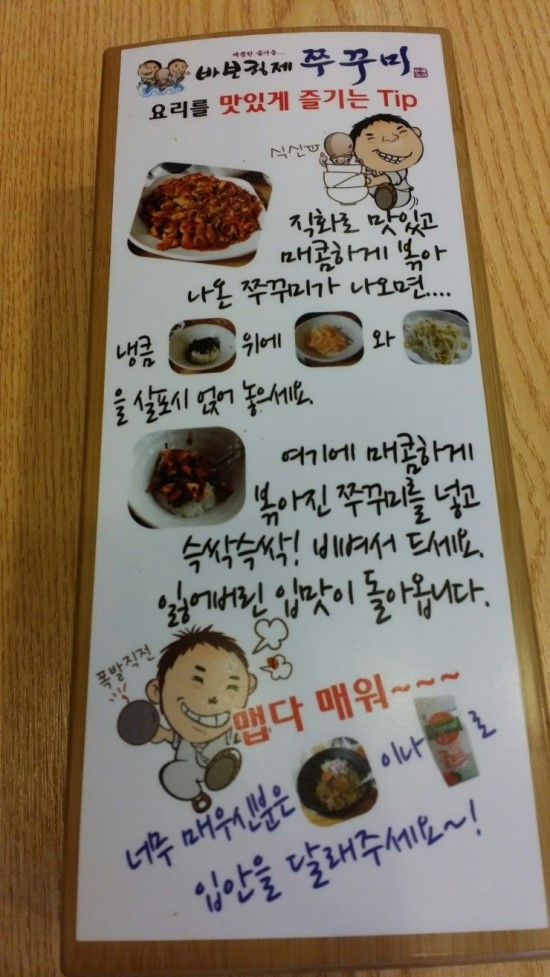 매콤한 즐거움...
바보형제 쭈꾸미
요리를 맛있게 즐기는 Tip
식신曰
직화로 맛있고
매콤하게 볶아
나온 쭈꾸미가 나오면....
냉큼 위에 와
을 살포시 얹어 놓으세요.
여기에 매콤하게
볶아진 쭈꾸미를 넣고
슥싹슥싹! 비벼서 드세요.
잃어버린 입맛이 돌아옵니다.
폭발직전
맵다 매워~~~
너무 매우신분은 이나 로
입안을 달래주세요~!